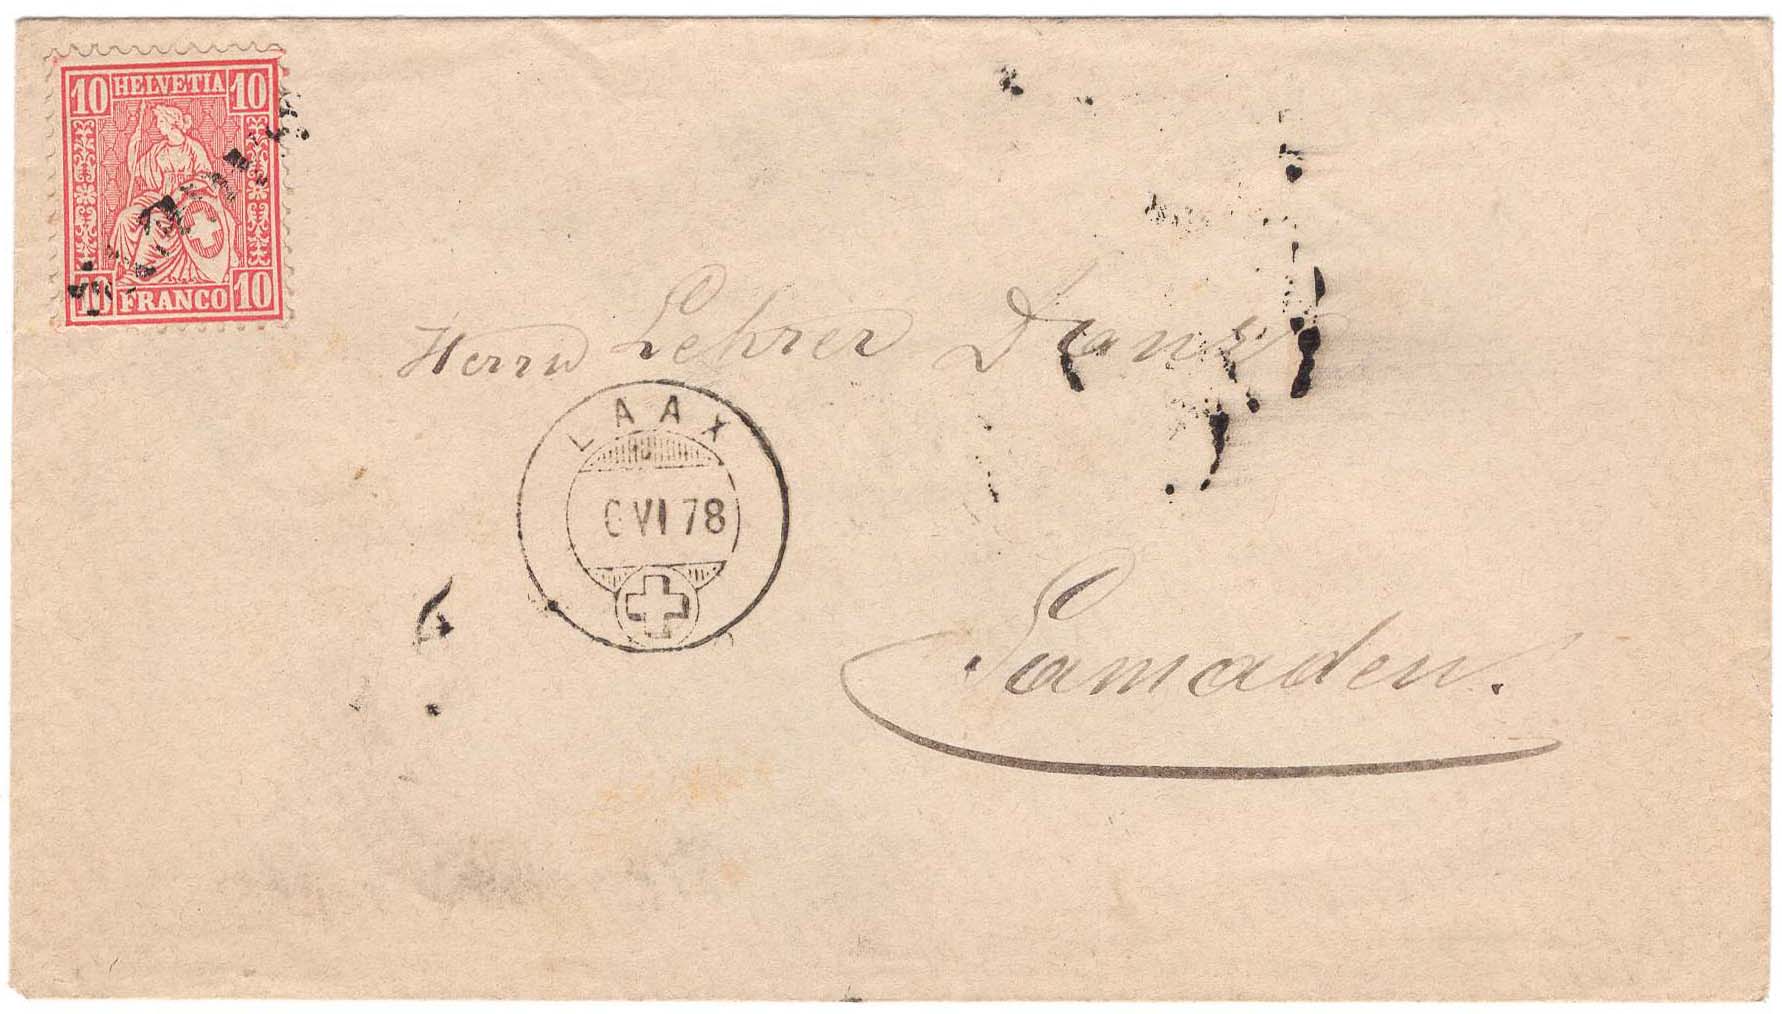 10 HELVETIA 10
10 FRANCO 10
Herrn Lehrer
LAAX
6 VI 78
Samaden.